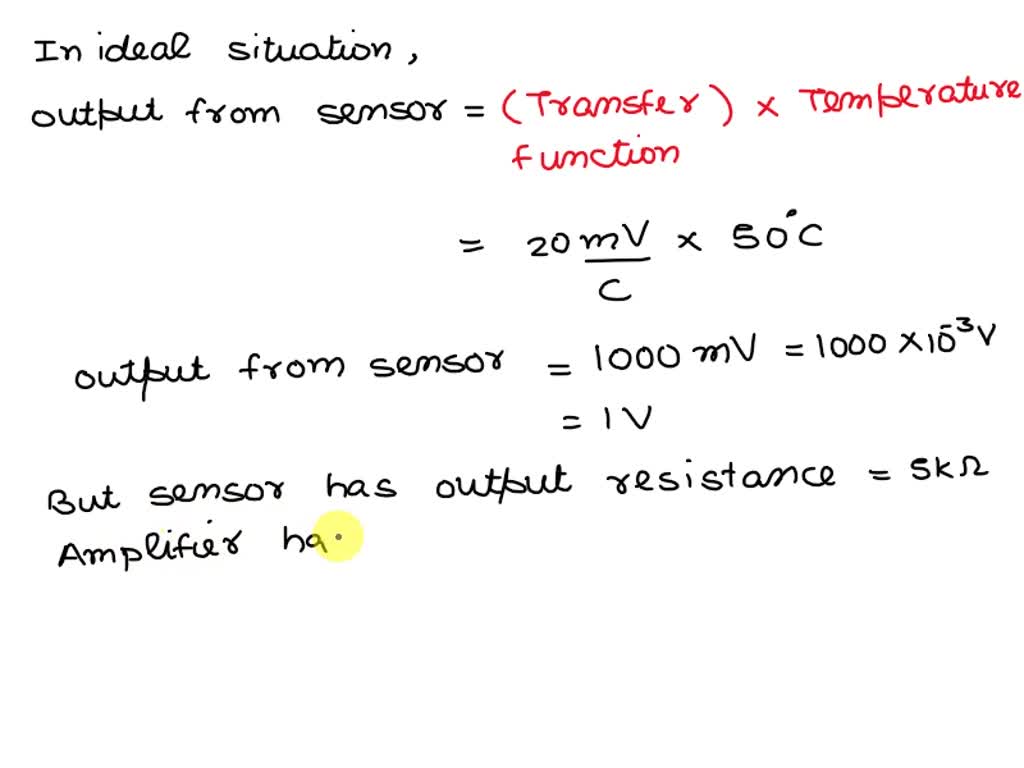 In ideal situation,
output from sensor = (Transfer) × Temperature
function
= 20 mV/C × 50°C
output from sensor = 1000 mV = 1000 × 10⁻³ V
= 1V
But sensor has output resistance = 5kΩ
Amplifier ha